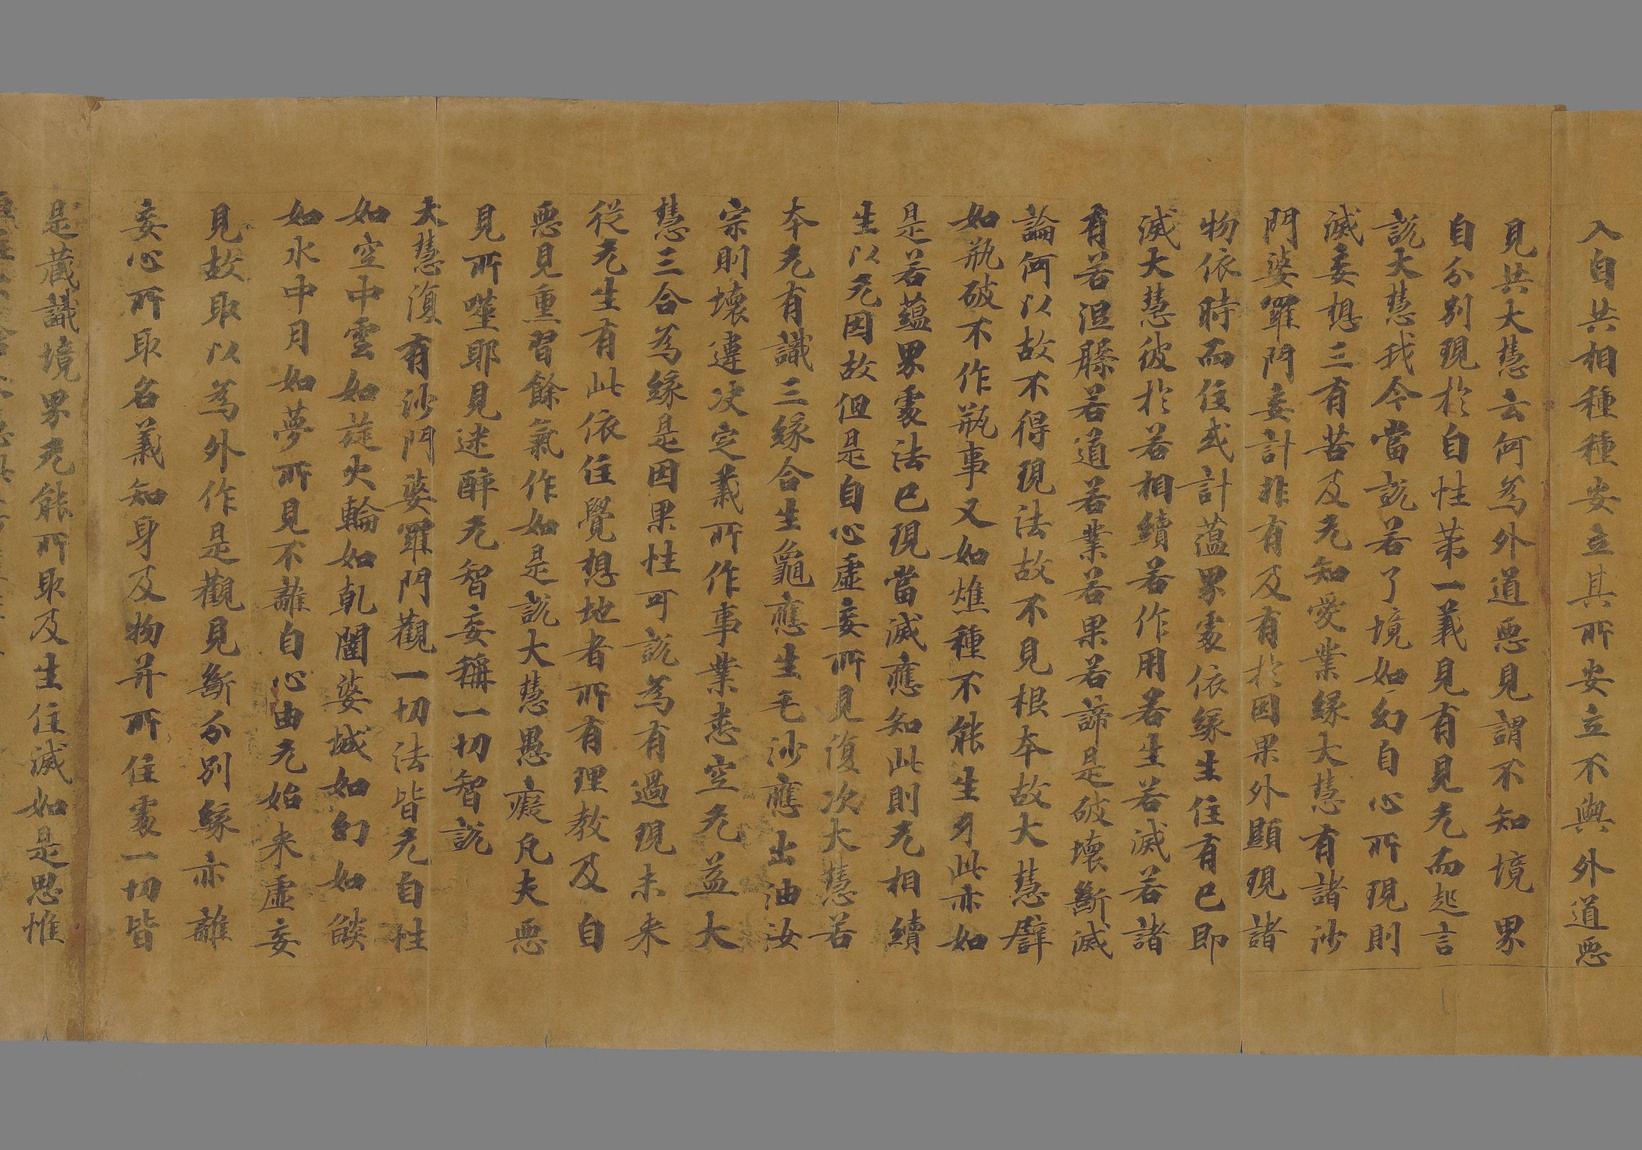 入自共相種種安立其所安立不與外道惡
見共大慧云何為外道惡見謂不知境界
自分別現於自性第一義見有見无而起言
說大慧我今當說若了境如幻自心所現則
滅妄想三有苦及无知愛業緣大慧有諸沙
門婆羅門妄計非有及有於因果外顯現諸
物依時而住或計蘊界處依緣生住有已即
滅大慧彼於若相續若作用若生若滅若諸
有若涅槃若道若業若果若諦是破壞斷滅
論何以故不得現法故不見根本故大慧譬
如瓶破不作瓶事又如燋種不能生牙此亦如
是若蘊界處法已現當滅應知此則无相續
生以无因故但是自心虛妄所見復次大慧若
本无有識三緣合生龜應生毛沙應出油汝
宗則壞違決定義所作事業悉空无益大
慧三合為緣是因果性可說為有過現未來
從无生有此依住覺想地者所有理教及自
惡見熏習餘氣作如是說大慧愚癡凡夫惡
見所噬耶見迷醉无智妄稱一切智說
大慧復有沙門婆羅門觀一切法皆无自性
如空中雲如旋火輪如乹闥婆城如幻如燄
如水中月如夢所見不離自心由无始来虛妄
見故取以為外作是觀見斷分別緣亦離
妄心所取名義知身及物并所住處一切皆
是藏識境界无能所取及生住滅如是思惟